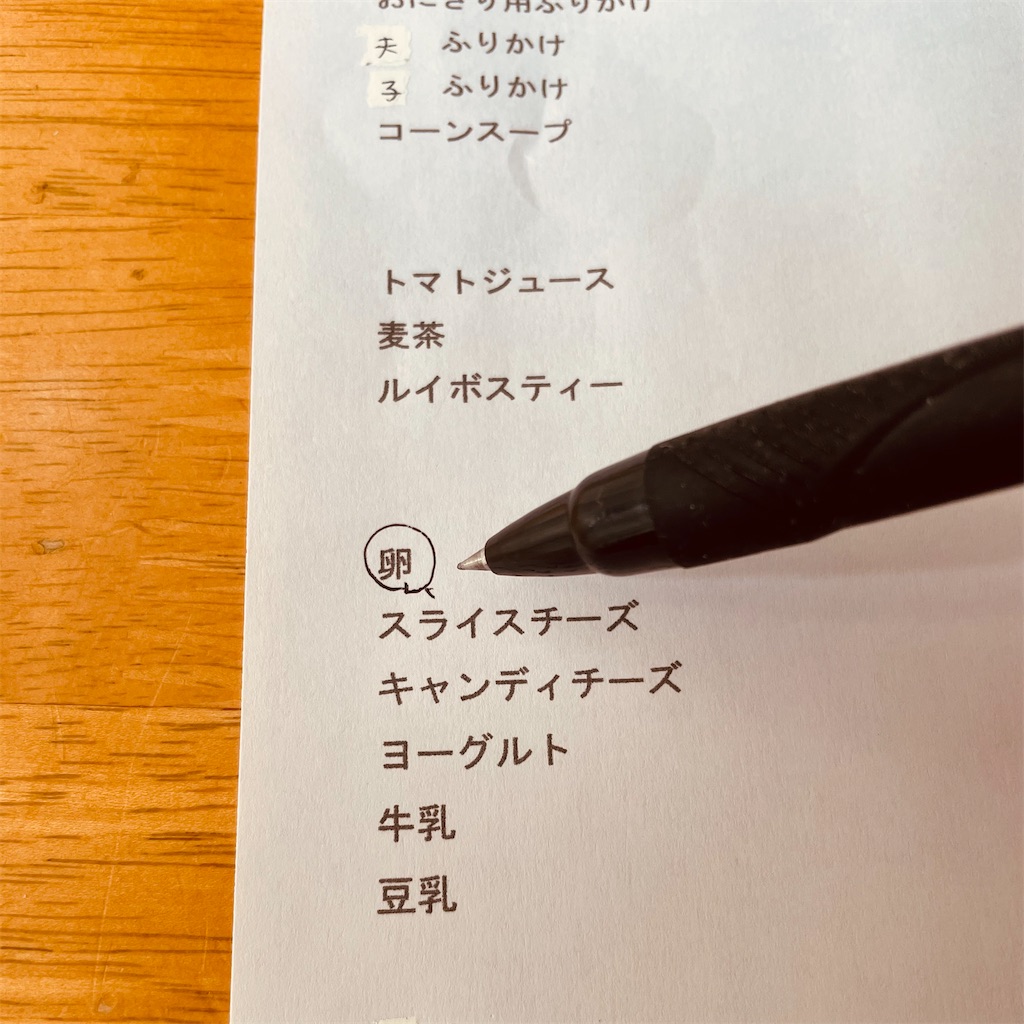 おにぎり用ふりかけ
夫 ふりかけ
子 ふりかけ
コーンスープ
トマトジュース
麦茶
ルイボスティー
卵
スライスチーズ
キャンディチーズ
ヨーグルト
牛乳
豆乳